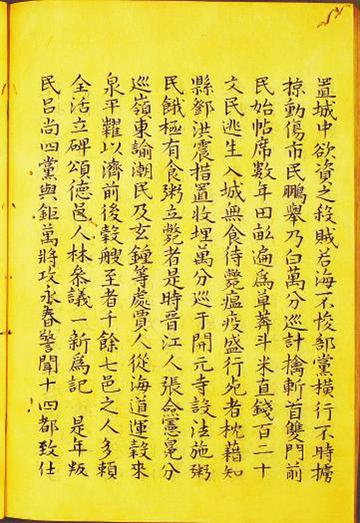 置城中欲資之殺賊若海不悛部黨橫行不時擄
掠動傷市民鵬舉乃白萬分巡計擒斬首雙門前
民始帖席數年田畝遍為草莽斗米直錢百二十
文民逃生入城無食待斃瘟疫盛行死者枕藉知
縣鄒洪震措置收埋萬分巡于開元寺設法施粥
民餓極有食粥立斃者是時晉江人張僉憲冕分
巡嶺東諭潮民及玄鐘等處賈人從海道運穀來
泉平糶以濟前後穀艘至者千餘七邑之人多賴
全活立碑頌德邑人林參議一新為記　是年叛
民呂尚四黨與鉅萬將攻永春警聞十四都致仕